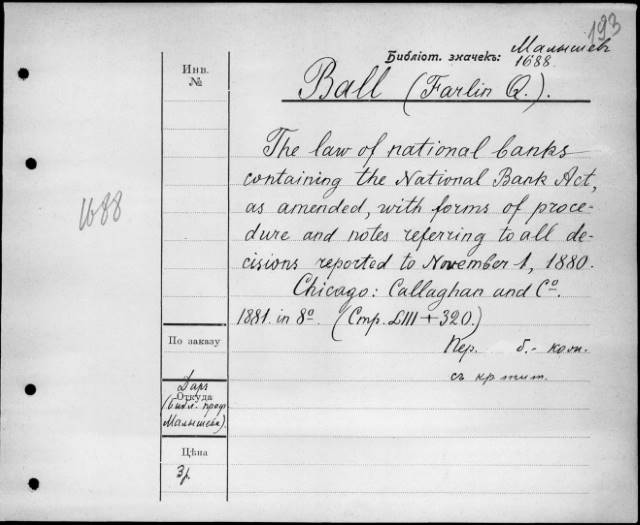 193
Малышев
Библіот. значекъ: 1688.
Инв.
№
Ball (Farlin Q.).
The law of national banks
containing the National Bank Act,
as amended, with forms of proce-
dure and notes referring to all de-
cisions reported to November 1, 1880.
1688
Chicago: Callaghan and Cº.
1881. in 8º. (Стр. LIII + 320.)
По заказу
Пер. б.- колн.
съ кр тит.
Даръ
Откуда
(библ. проф.
Малышева).
Цѣна
3 р